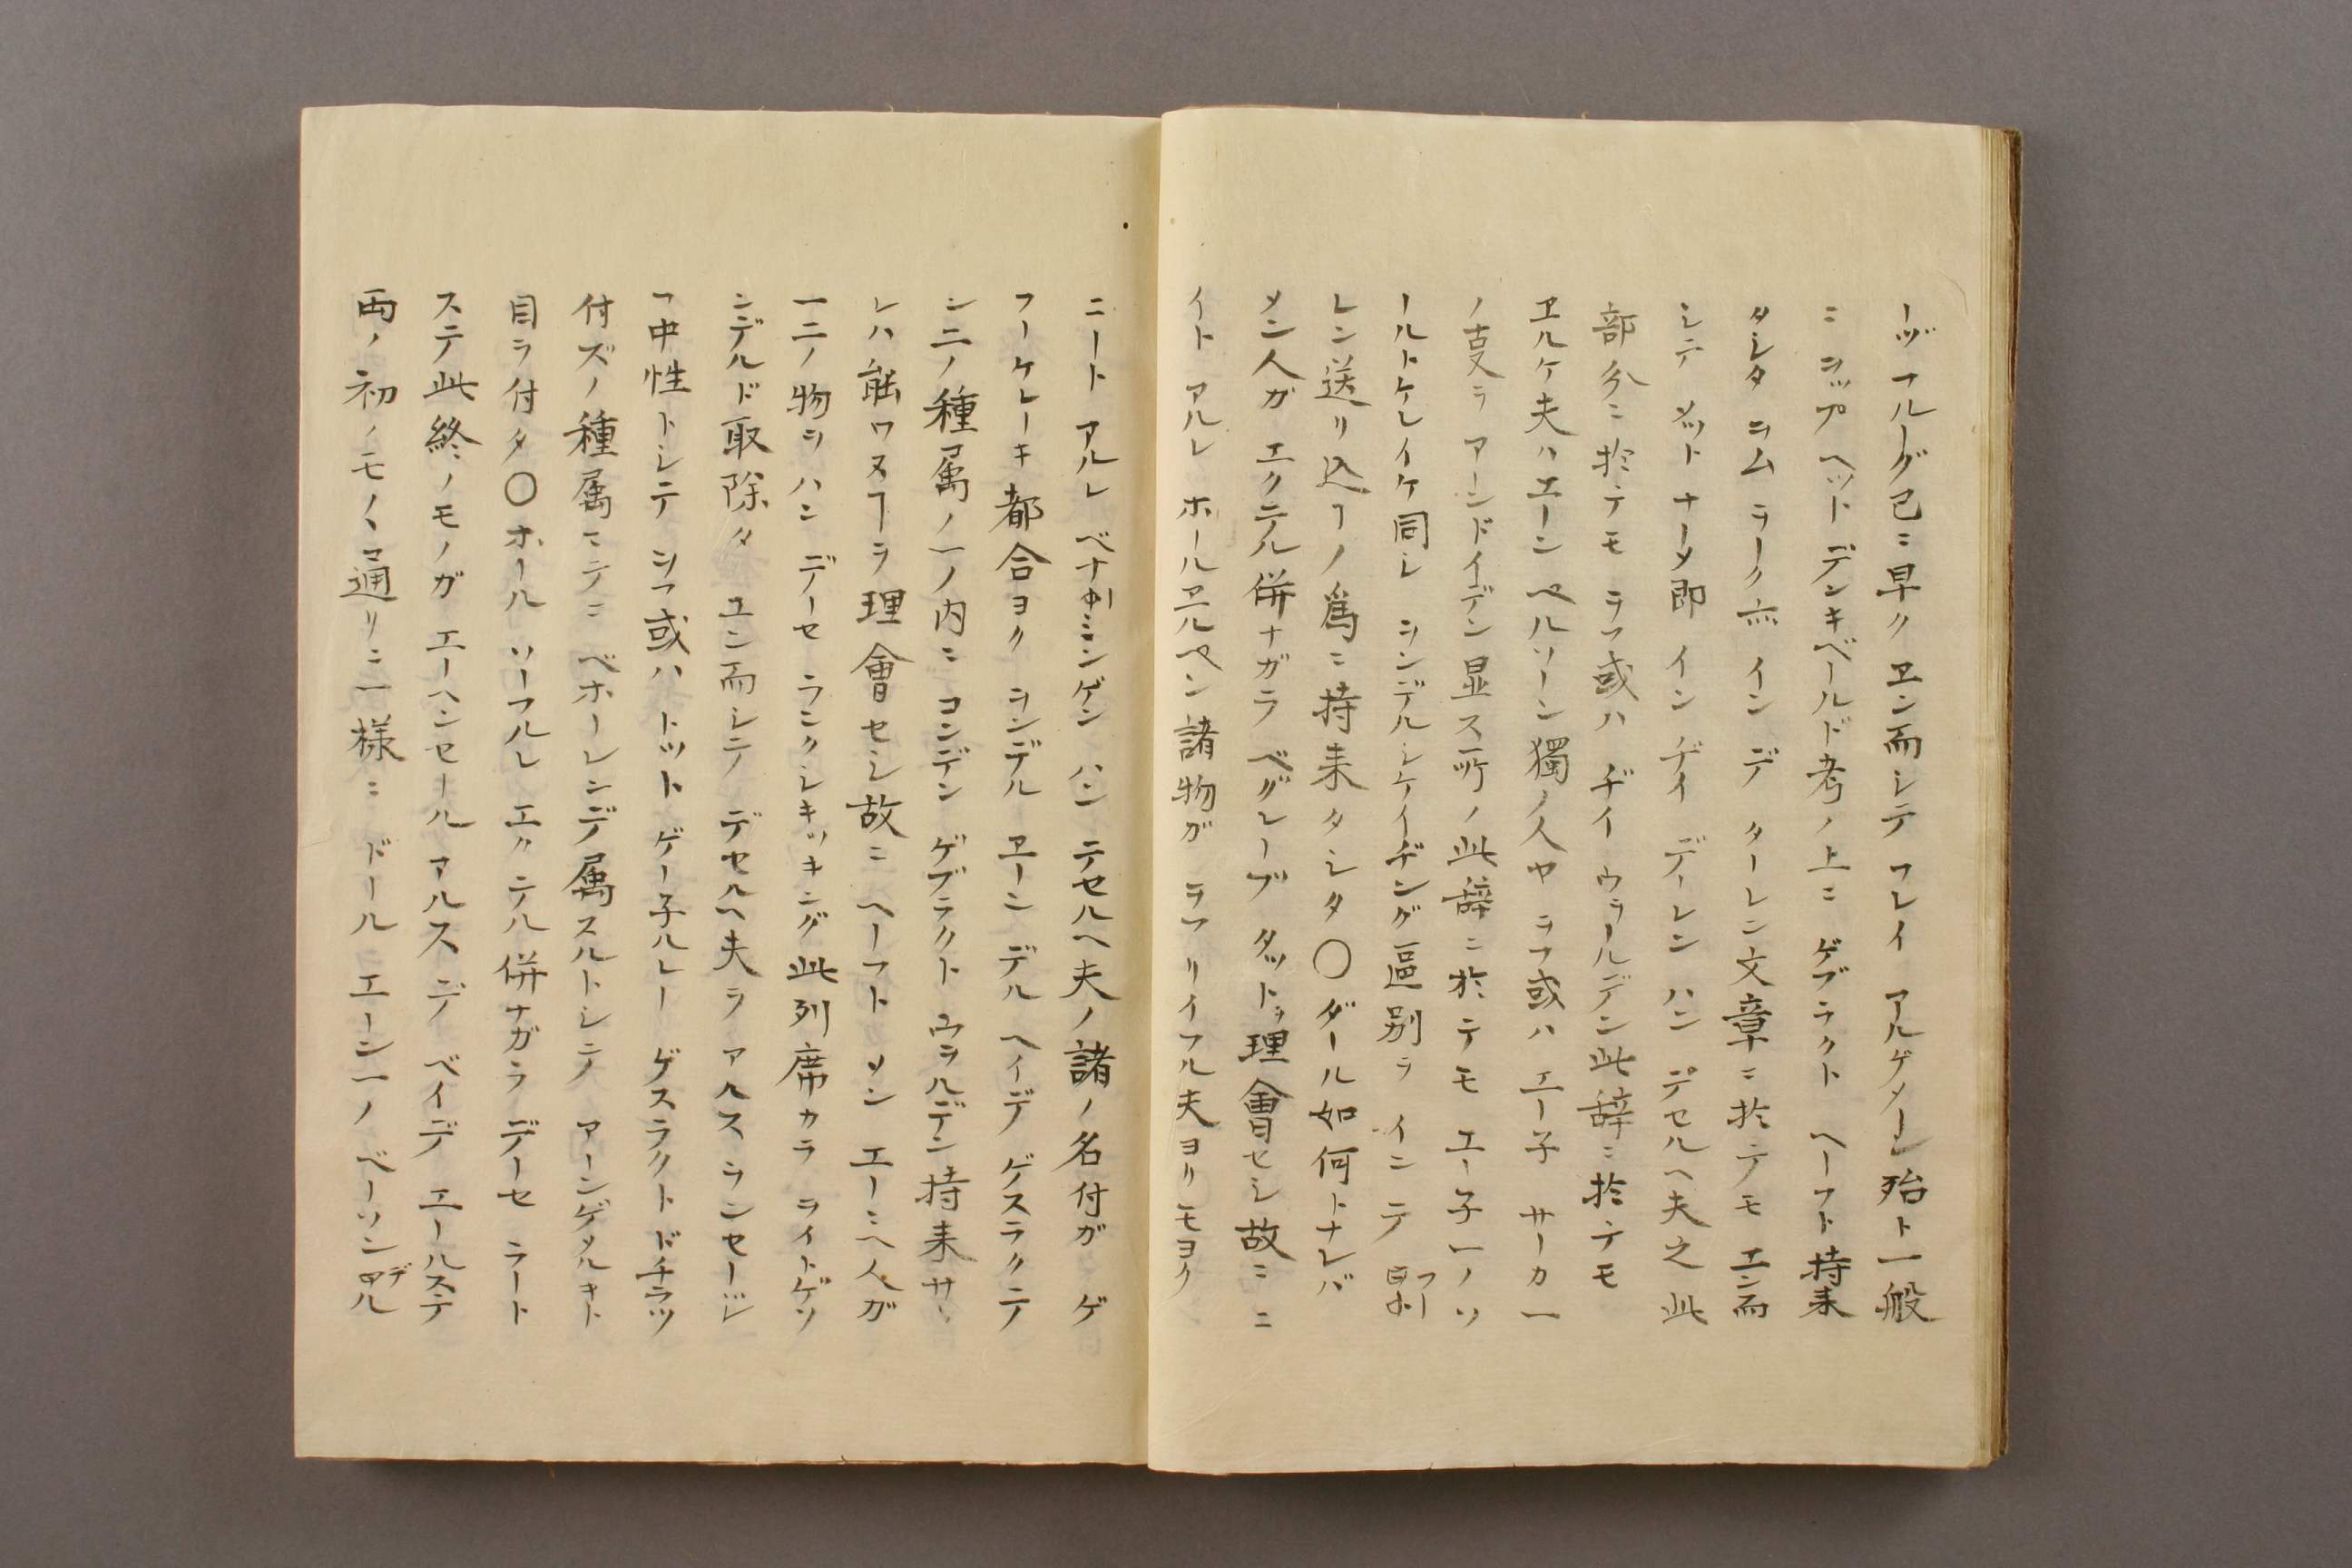 ーヅ フルーグ已ニ早ク ヱン而シテ フレイ アルゲメーン殆ト一般
ニ ヲップ ヘット デンキベールド考ノ上ニ ゲブラクト ヘーフト持来
タシタ ヲム ラーク亦 イン デ ターレン文章ニ於テモ ヱン而
シテ メット ナーメ即 イン ヂイ デーレン ハン デセルヘ夫之此
部分ニ於テモ ヲフ或ハ ヂイ ウヲールデン此辞ニ於テモ
ヱルケ夫ハエーン ペルソーン獨ノ人ヤ ヲフ或ハ エー子 サーカ一
ノ叓ヲ アーンドイデン显ス所ノ此辞ニ於テモ エー子一ノソ
ールトケレイケ同シ ヲンデルシケイヂング區别ヲ イン テ フー
レン送リ込ヿノ爲ニ持来タシタ〇ダール如何トナレバ
メン人ガ エクテル併ナガラ ベグレーブ ダットヲ理會セシ故ニ ニ
イト アルレ ホールヱルペン諸物ガ ヲフ リイフル夫ヨリモヨク
ニート アルレ ベナーミンゲン ハン テセルヘ夫ノ諸ノ名付ガ ゲ
フーケレーキ都合ヨク ヲンデル ヱーン デル ヘイデ ゲスラクテ
ン二ノ種属ノ一ノ内ニ コンデン ゲブラクト ウヲルデン持来サ
レハ能ワヌヿヲ理會セシ故ニ ヘーフト メン エーニヘ人ガ
一二ノ物ヲ ハン デーセ ランクシキッキング此列席カラ ライトゲソ
ンデルド取除タ ヱン而シテ デセルヘ夫ヲ アルス ヲンセーシ
フ中性トシテ ヲフ或ハ トット ゲー子ルレー ゲスラクト ドチラツ
付ズノ種属ニテニ ベホーレンデ属スルトシテ アーンゲメルキト
目ヲ付タ〇ホール ソーフルレ エクテル併ナガラ デーセ ラート
ステ此終ノモノガ エーヘンセール アルス デ ベイデ エールステ
両ノ初ノモノヽ通リニ一様ニ ドール エーン一ノ ベーソンデル